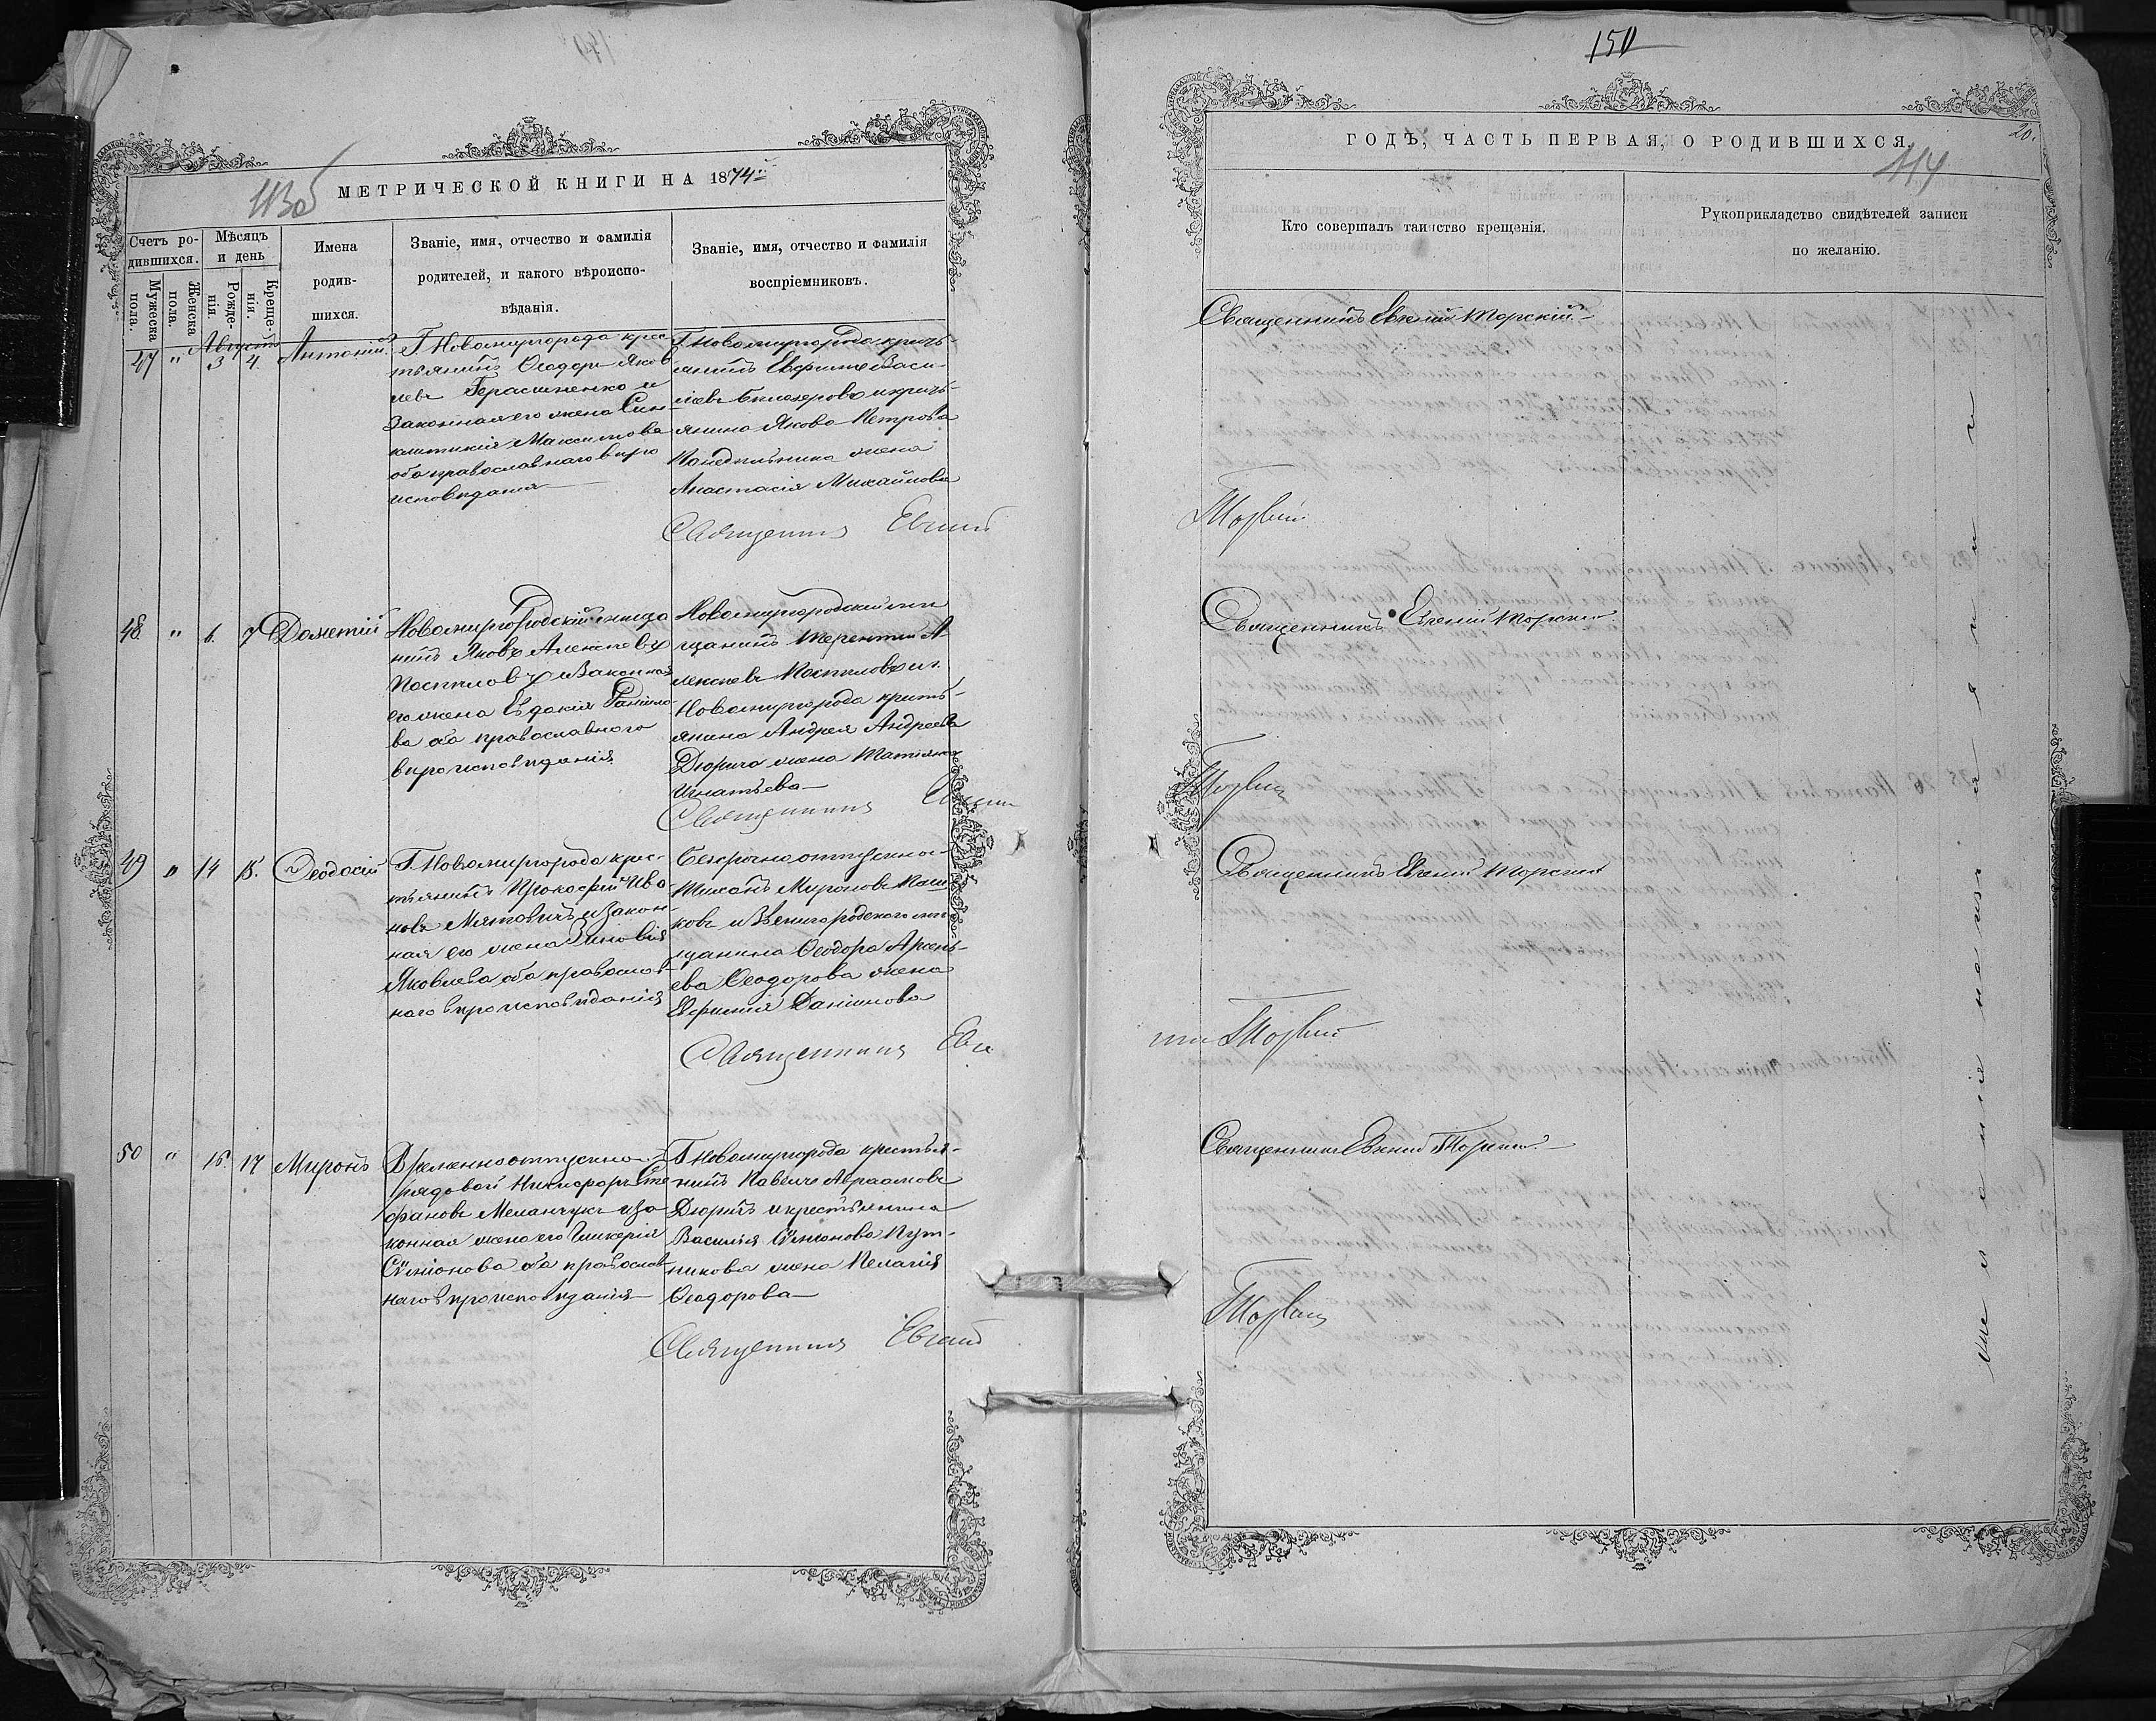 150
МЕТРИЧЕСКОЙ КНИГИ НА 1874й
113об
Счетъ ро-
дившихся.
Мужеска
пола.
Женска
пола.
Мѣсяцъ
и день
Рожде-
нія.
Креще-
нія.
Имена
родив-
шихся.
Званіе, имя, отчество и фамилія
родителей, и какого вѣроиспо-
вѣданія.
Званіе, имя, отчество и фамилія
воспріемниковъ.
Августъ
47 " 3 4. Антоній
Г. Новомиргорода крес-
тьянинъ Ѳеодоръ Яков
левъ Герасименко и
законная его жена Син-
клитикія Максимова
оба православнаго вѣро
исповѣданія
Г. Новомиргорода кресть-
янинъ Ефимъ Васи-
ліевъ и кресть-
янина Якова Петрова
жена
Анастасія Михайлова
Священникъ Евгеній
48 " 6. 7 Дометій
Новомиргородскій мѣща
нинъ Яковъ Алексѣевъ
Поспѣловъ и законная
его жена Евдокія Даніило
ва оба православнаго
вѣроисповѣданія
Новомиргородскій мѣ
щанинъ Терентій А
лексѣевъ Поспѣловъ и г.
Новомиргорода кресть-
янина Андрея Андреева
Дюрича жена Татіана
Игнатьева
Священникъ Евгеній
49 " 14 15. Ѳеодосій
Г. Новомиргорода крес-
тьянинъ Прокофій Ива
новъ Мятовичъ и закон-
ная его жена Зиновія
Яковлева оба православ
наго вѣроисповѣданія
Безсрочноотпускной
Мироновъ Паш
ковъ и Звенигородскаго мѣ
щанина Ѳеодора Арсень-
ева Ѳеодорова жена
Евфимія Даніилова
Священникъ Евге
50 " 16. 17 Миронъ
Временноотпускной
рядовой Никифоръ Сте
фановъ Меланчукъ и за
конная жена его Гликерія
Симіонова оба православ
наго вѣроисповѣданія
Г. Новомиргорода крестья-
нинъ Павелъ Авраамовъ
Дюричъ и крестьянина
Василія Симіонова Пут-
никова жена Пелагія
Ѳеодорова
Священникъ Евгеній
ГОДЪ, ЧАСТЬ ПЕРВАЯ, О РОДИВШИХСЯ.
20.
114
Кто совершалъ таинство крещенія.
Рукоприкладство свидѣтелей записи
по желанію.
Священникъ Евгеній Торскій
Торскій
Священникъ Евгеній Торскій
Торскій
Священникъ Евгеній Торскій
ній Торскій
Священникъ Евгеній Торскій
Торскій